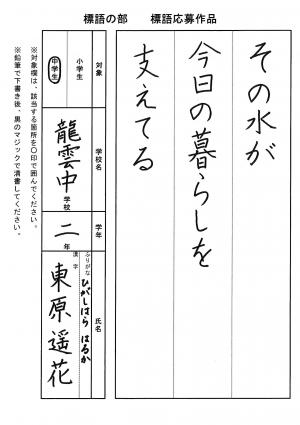 標語の部　標語応募作品
その水が
今日の暮らしを
支えてる
対象
小学生
中学生
学校名
龍雲中学校
学年
二年
氏名
ふりがな
ひがしはら はるか
漢字
東原遥花
※対象欄は、該当する箇所を〇印で囲んでください。
※鉛筆で下書き後、黒のマジックで清書してください。